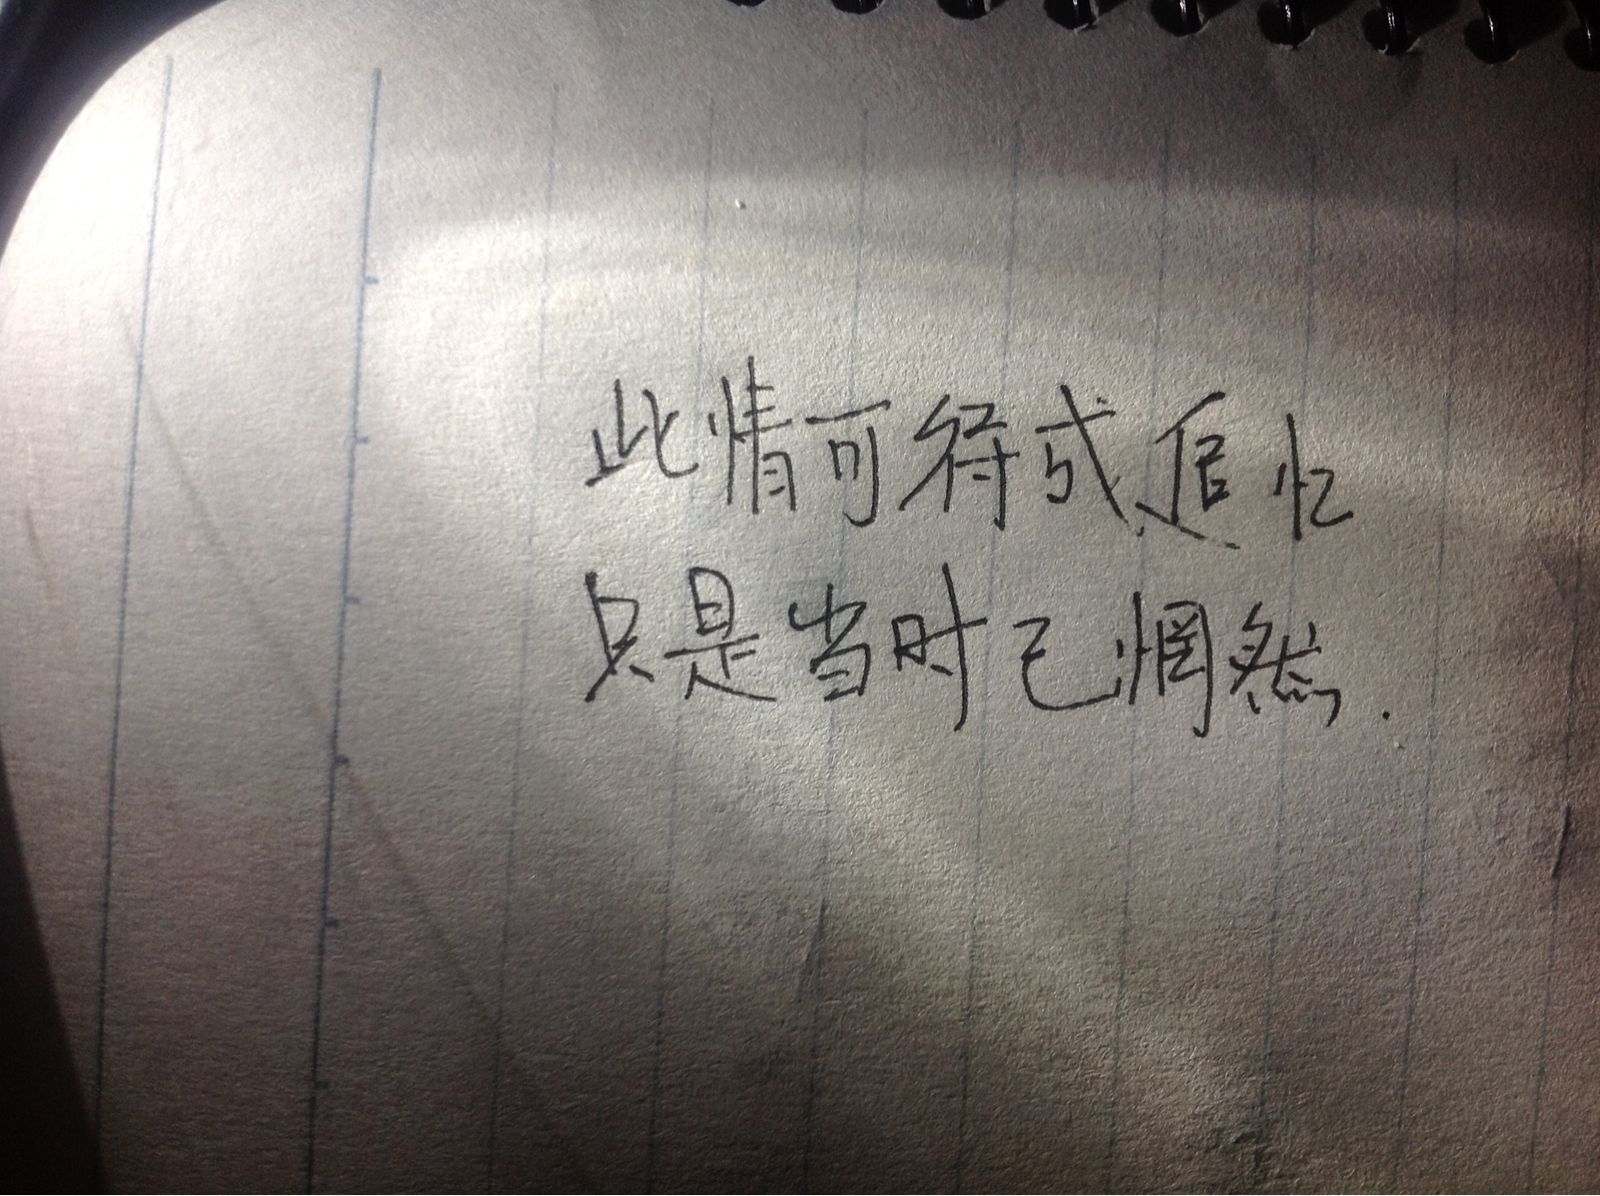 此情可待成追忆
只是当时已惘然.